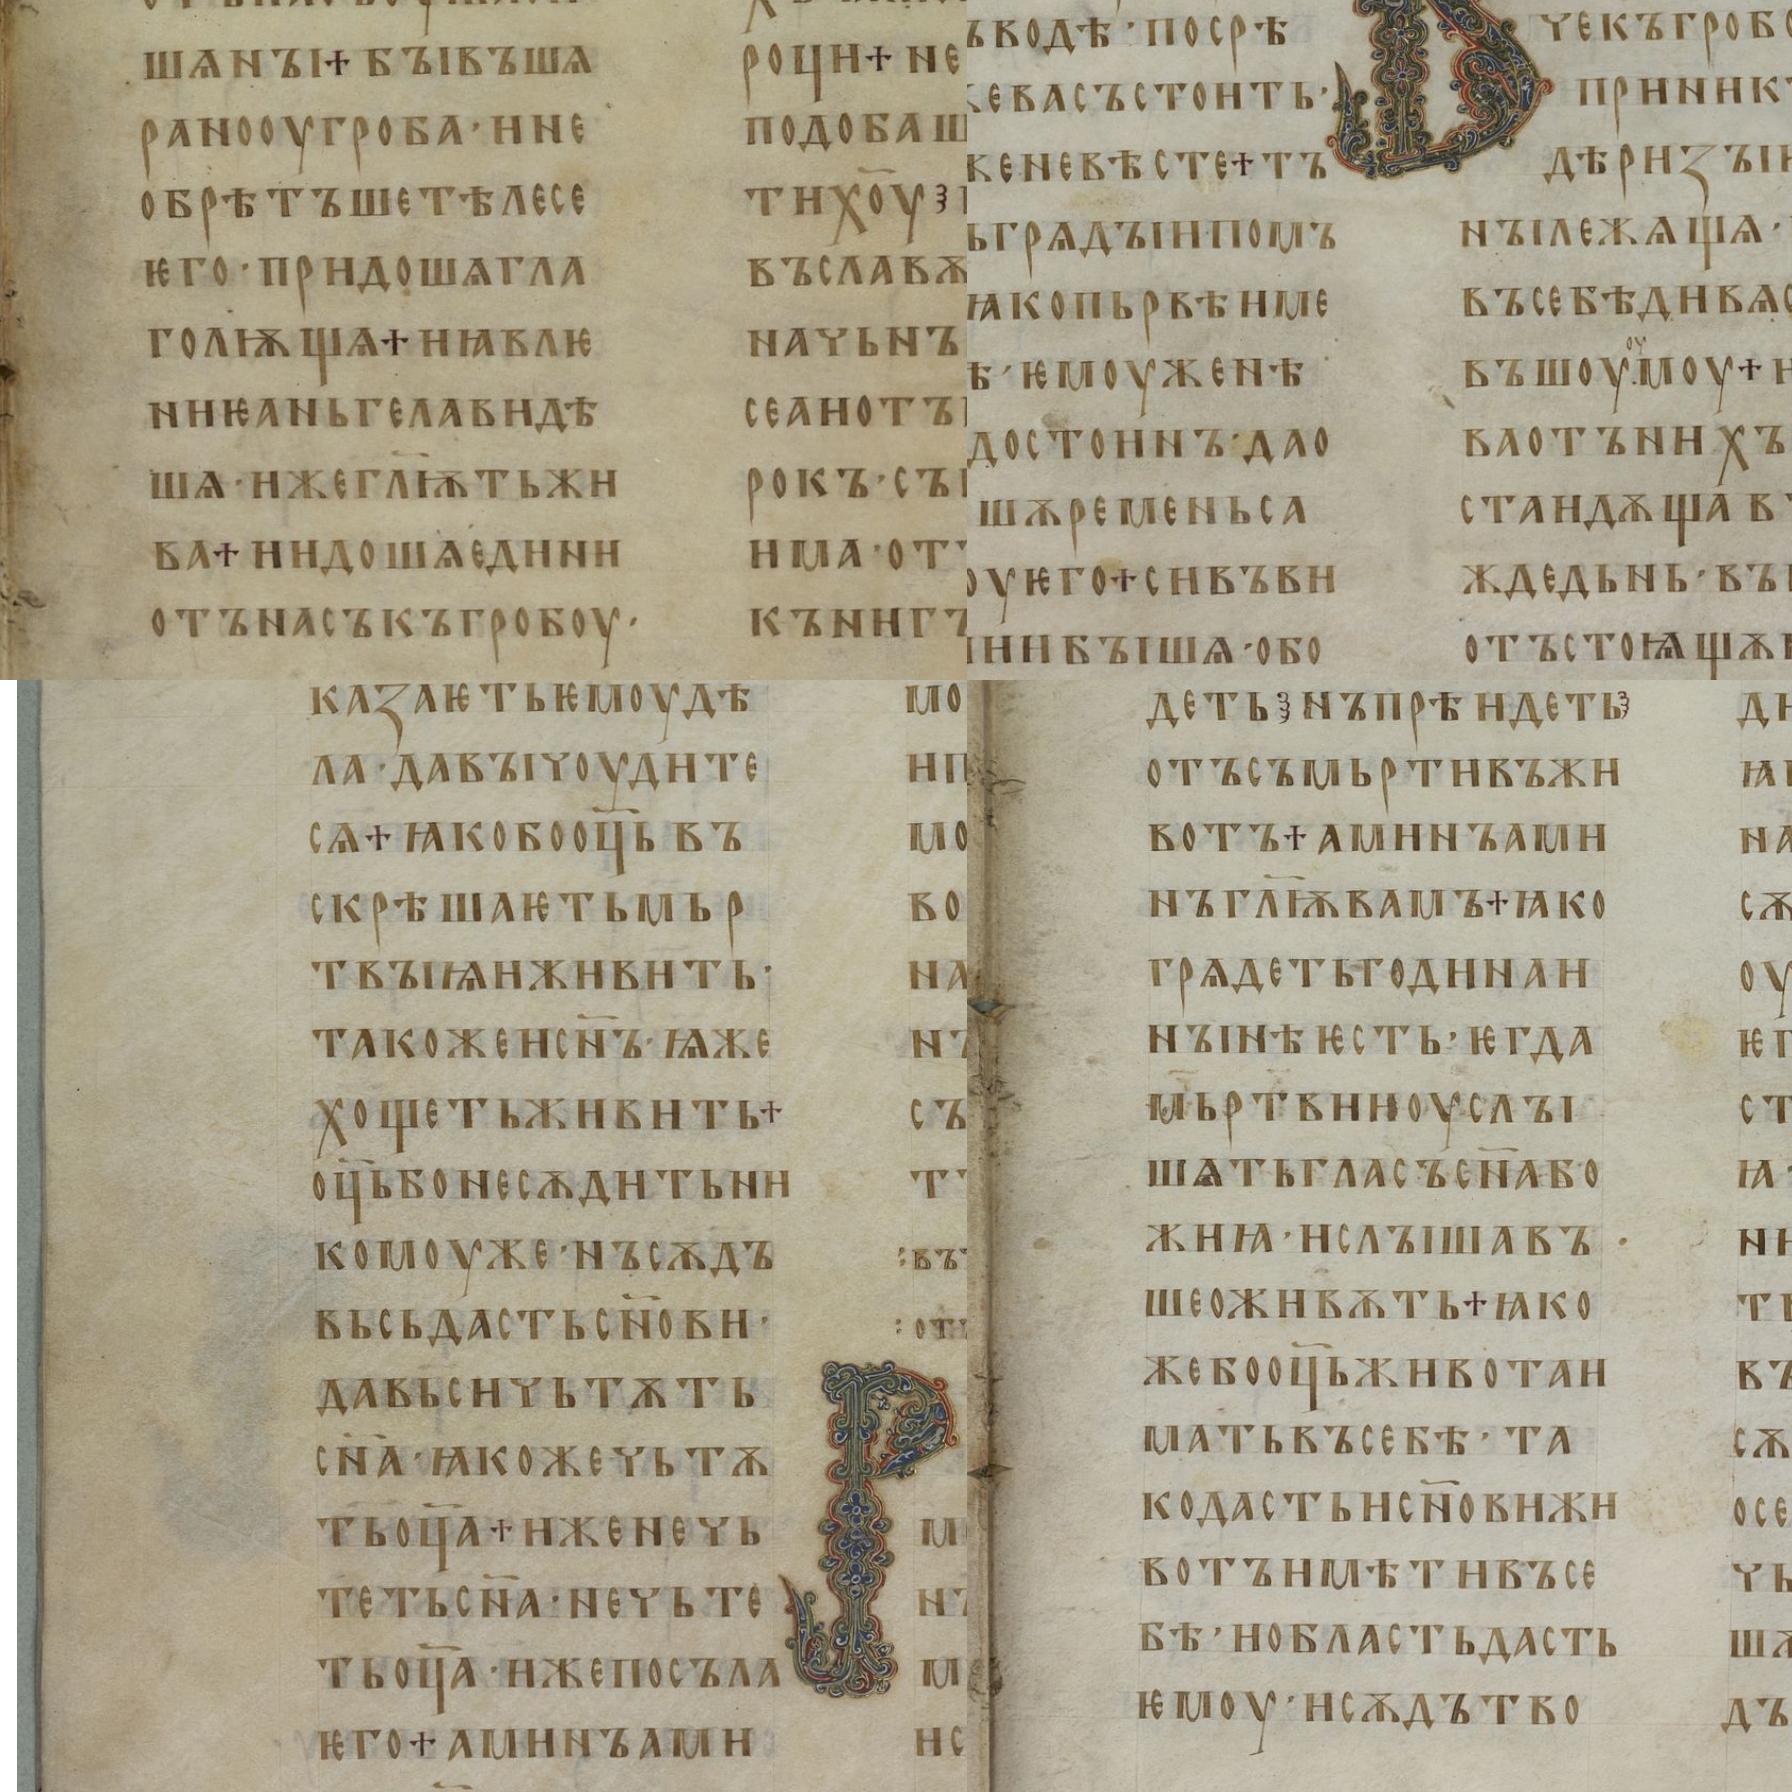 шѧнꙑ+бꙑвъшѧ
ранооугроба·ине
обрѣтъшетѣлесе
ѥго·придошѧгла
голѭщѧ+иꙗвлѥ
ниѥаньгелавидѣ
шѧ·ижегл҃ѭтьжи
ва+иидошѧедини
отънасъкъгробоу·
роци+не
подобаш
тихо҃у
въславѫ
начьнъ
сеаотъ
рокъ·съ
има·от
кънигъ
ьводѣ·посрѣ
жевасъстоить·
женевѣсте+тъ
ьгрѧдꙑипомъ
ꙗкопьрвѣиме
ѣ·ѥмоуженѣ
достоинъ·дао
шѫременьса
оуѥго+сивъви
иибꙑшѧ·обо
чекъгробо
приник
дѣризꙑ
нꙑлежѧщѧ·
въсебѣдивѧс
въшоуоумоу+и
ваотънихъ
стаидѫщав
ждедьнь·въ
отъстоѩщѫ
казаѥтьѥмоудѣ
ла·давꙑчоудите
сѧ+ꙗкобооц҃ьвъ
скрѣшаѥтьмьр
твꙑѩиживить·
такожеисн҃ъ·ѩже
хощетьживить+
оц҃ьбонесѫдитьни
комоуже·нъсѫдъ
вьсьдастьсн҃ови·
давьсичьтѫть
сн҃а·ꙗкожечьтѫ
тьоц҃а+иженечь
тетьсн҃а·нечьте
тьоц҃а·ижепосъла
ѥго+аминъами
мо
ип
мо
во
на
нъ
съ
т
въ
от
м
нъ
м
ис
деть·нъпрѣидеть
отъсъмьртивъжи
вотъ+аминъами
нъгл҃ѭвамъ+ꙗко
грѧдетьгодинаи
нꙑнѣѥсть·ѥгда
мьртвииоуслꙑ
шѧтьгласъсн҃або
жиꙗ·ислꙑшавъ
шеоживѫть+ꙗко
жебооц҃ьживотаи
матьвъсебѣ·та
кодастьисн҃овижи
вотъимѣтивъсе
бѣ·иобластьдасть
ѥмоу·исѫдътво
ди
ꙗ
на
сѫ
оу
ѥг
ст
ꙗ
ни
ть
въ
сѫ
осе
чь
шѧ
дъ